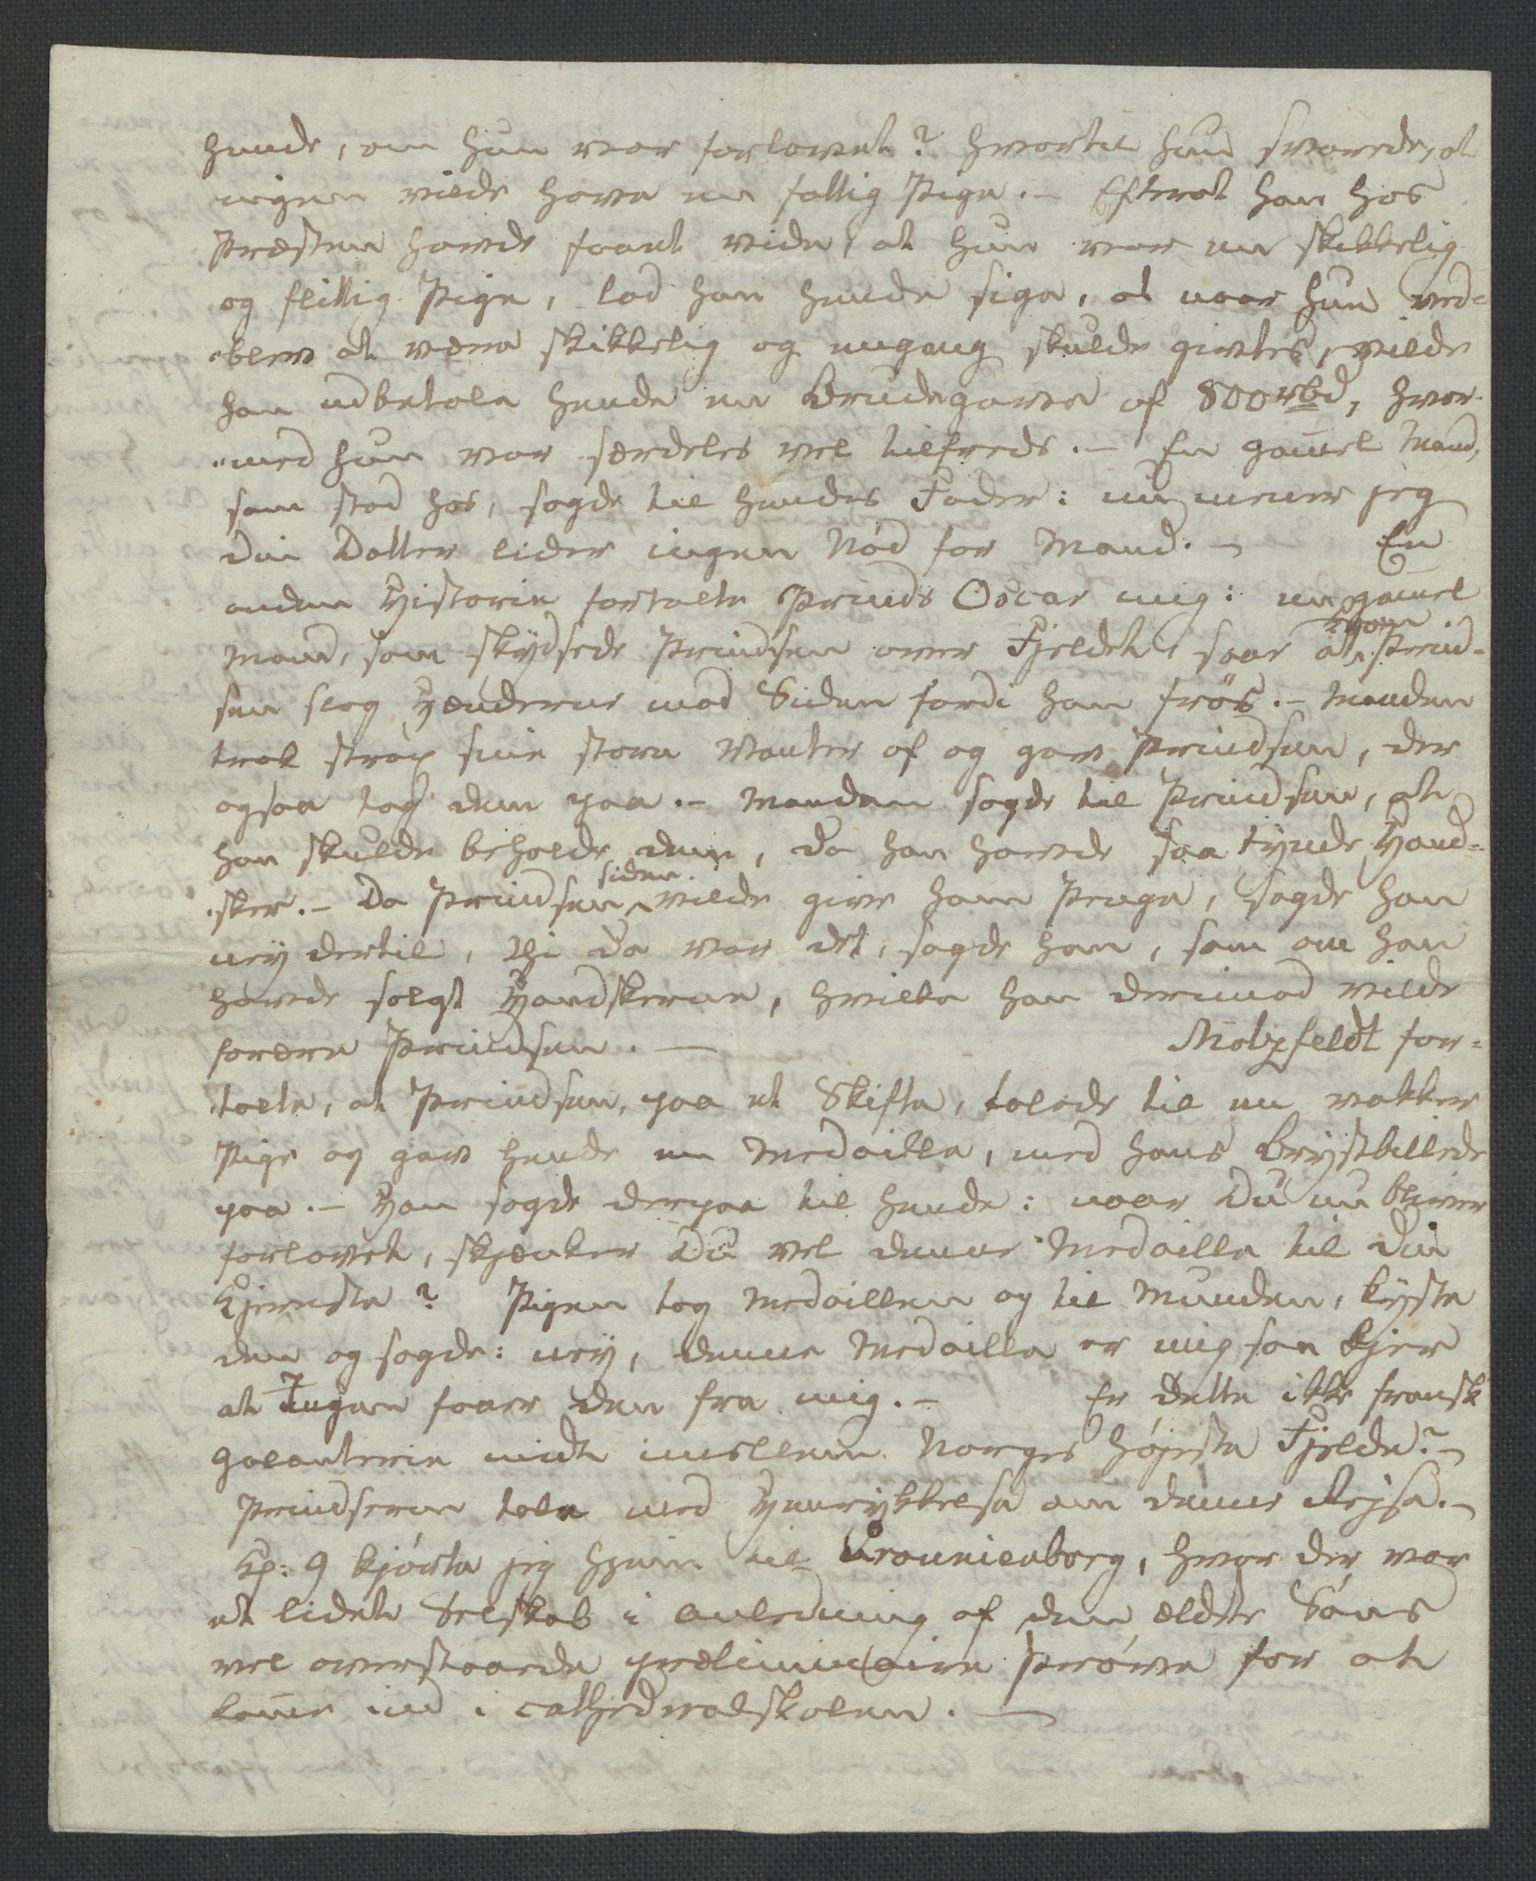 hende, om hun var forlovet? hvortil hun svarede, at
ingen vilde have en fattig Pige. – Efterat han hos
Præsten havde faaet vide, at hun var en skikkelig
og flittig Pige, lod han hende sige, at naar hun ved-
-blev at være skikkelig og engang skulde giftes, vilde
han udbetale hende en Brudegave af 800 rbd, hvor-
-med hun var særdeles vel tilfreds. – En gamel Mand,
som stod hos, sagde til hendes Fader: nu mener jeg
din Datter lider ingen Nød for Mand. – En
anden Historie fortalte Prinds Oscar mig: en gamel
Mand, som skydsede Prindsen over Fjeldet, saae at Prind-
sen slog Hænderne mod Siden fordi han frøs. – Manden
trak strax sine store Vanter af og gav Prindsen, der
ogsaa tog dem paa. – Manden sagde til Prindsen, at
han skulde beholde dem, da han havde saa tynde Hand-
-sker. – Da Prindsen siden vilde give ham Penge, sagde han
nej dertil, thi da var det, sagde han, som om han
havde solgt Handskerne, hvilke han derimod vilde
forære Prindsen. – Motzfeldt for-
-talte, at Prindsen, paa et Skifte, talede til en vakker
Pige og gav hende en Medaille, med hans Brystbillede
paa. – Han sagde derpaa til hende: naar Du nu bliver
forlovet, skjenker Du vel denne Medaille til din
Kjereste? Pigen tog Medaillen og til Munden, kyste
den og sagde: nej, denne Medaille er mig saa kjer
at Ingen faaer den fra mig. – Er dette ikke fransk
Galanterie midt imellem Norges højeste Fjelde? –
Prindserne tale med Henrykkelse om denne Rejse. –
Kl: 9 kjørte jeg hjem til Uranienborg, hvor der var
et lidet Selskab i Anledning af den ældste Søns
vel overstaaede prælimin(aire Prøve for at
kome ind i Cathedralskolen. –